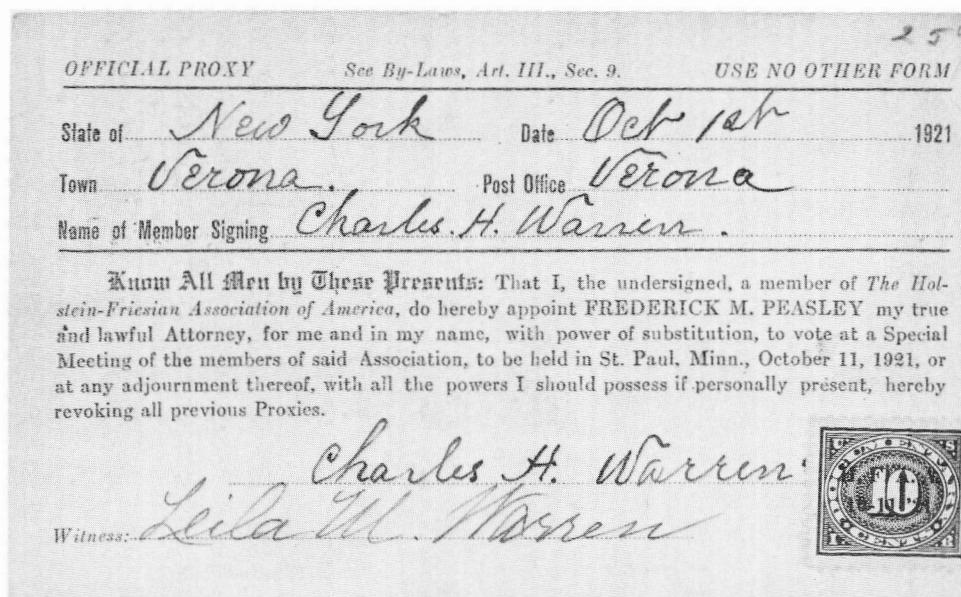 25
OFFICIAL PROXY See By-Laws, Art. III., Sec. 9. USE NO OTHER FORM
State of New York Date Oct 1st 1921
Town Verona. Post Office Verona
Name of Member Signing Charles. H. Warren.
Know All Men by These Presents: That I, the undersigned, a member of The Hol-
stein-Friesian Association of America, do hereby appoint FREDERICK M. PEASLEY my true
and lawful Attorney, for me and in my name, with power of substitution, to vote at a Special
Meeting of the members of said Association, to be held in St. Paul, Minn., October 11, 1921, or
at any adjournment thereof, with all the powers I should possess if personally present, hereby
revoking all previous Proxies.
Charles H. Warren
Witness: Leila M. Warren
U.S. DOCUMENTARY
10 CENTS